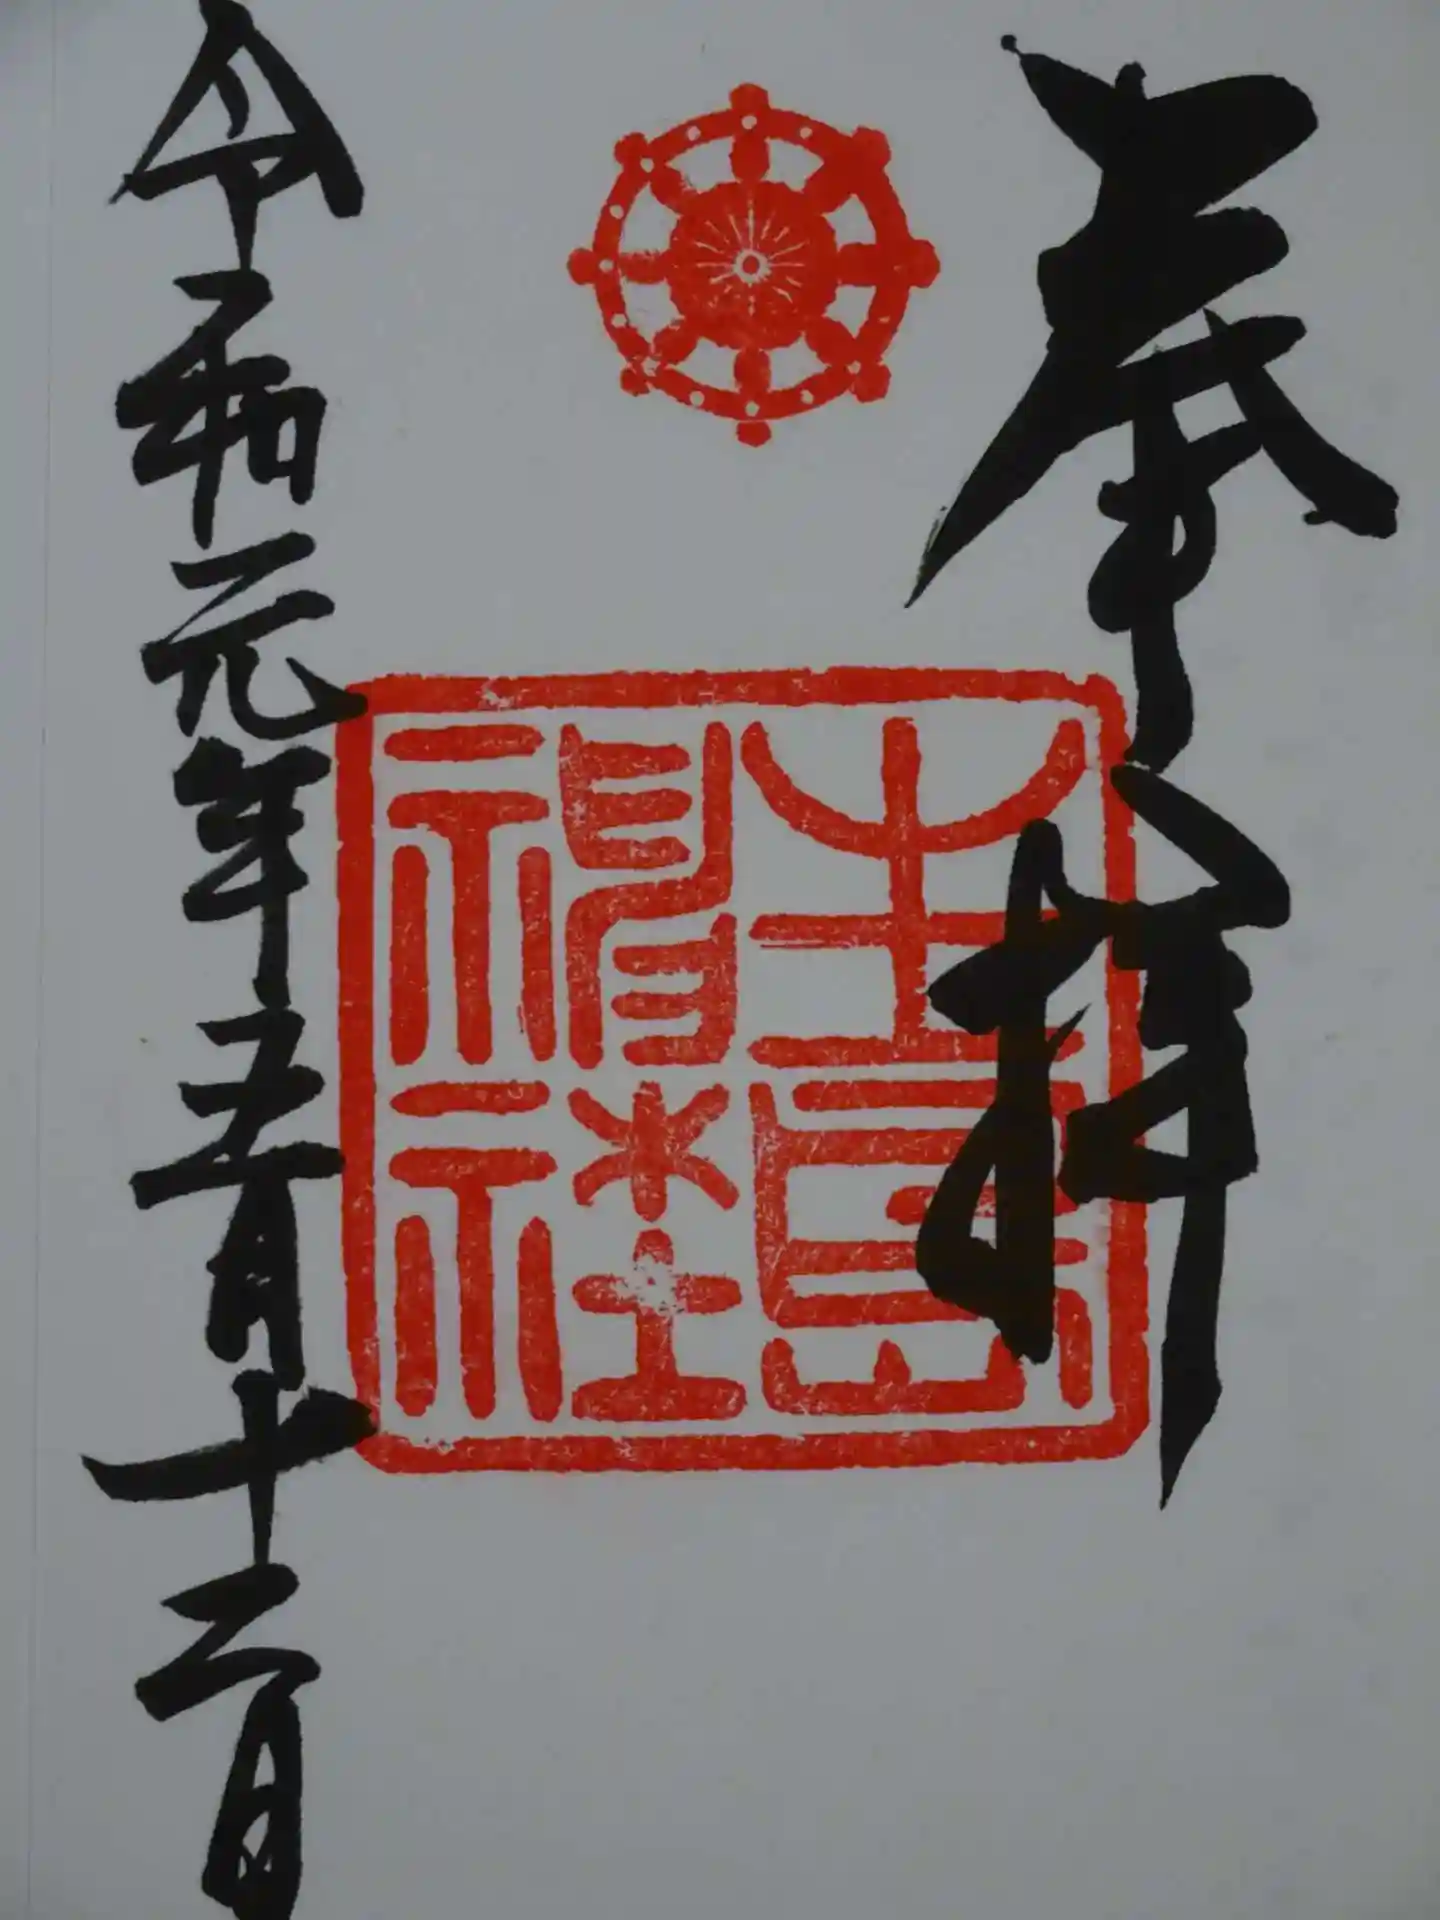 奉拝
生島
神社
令和元年五月十二日